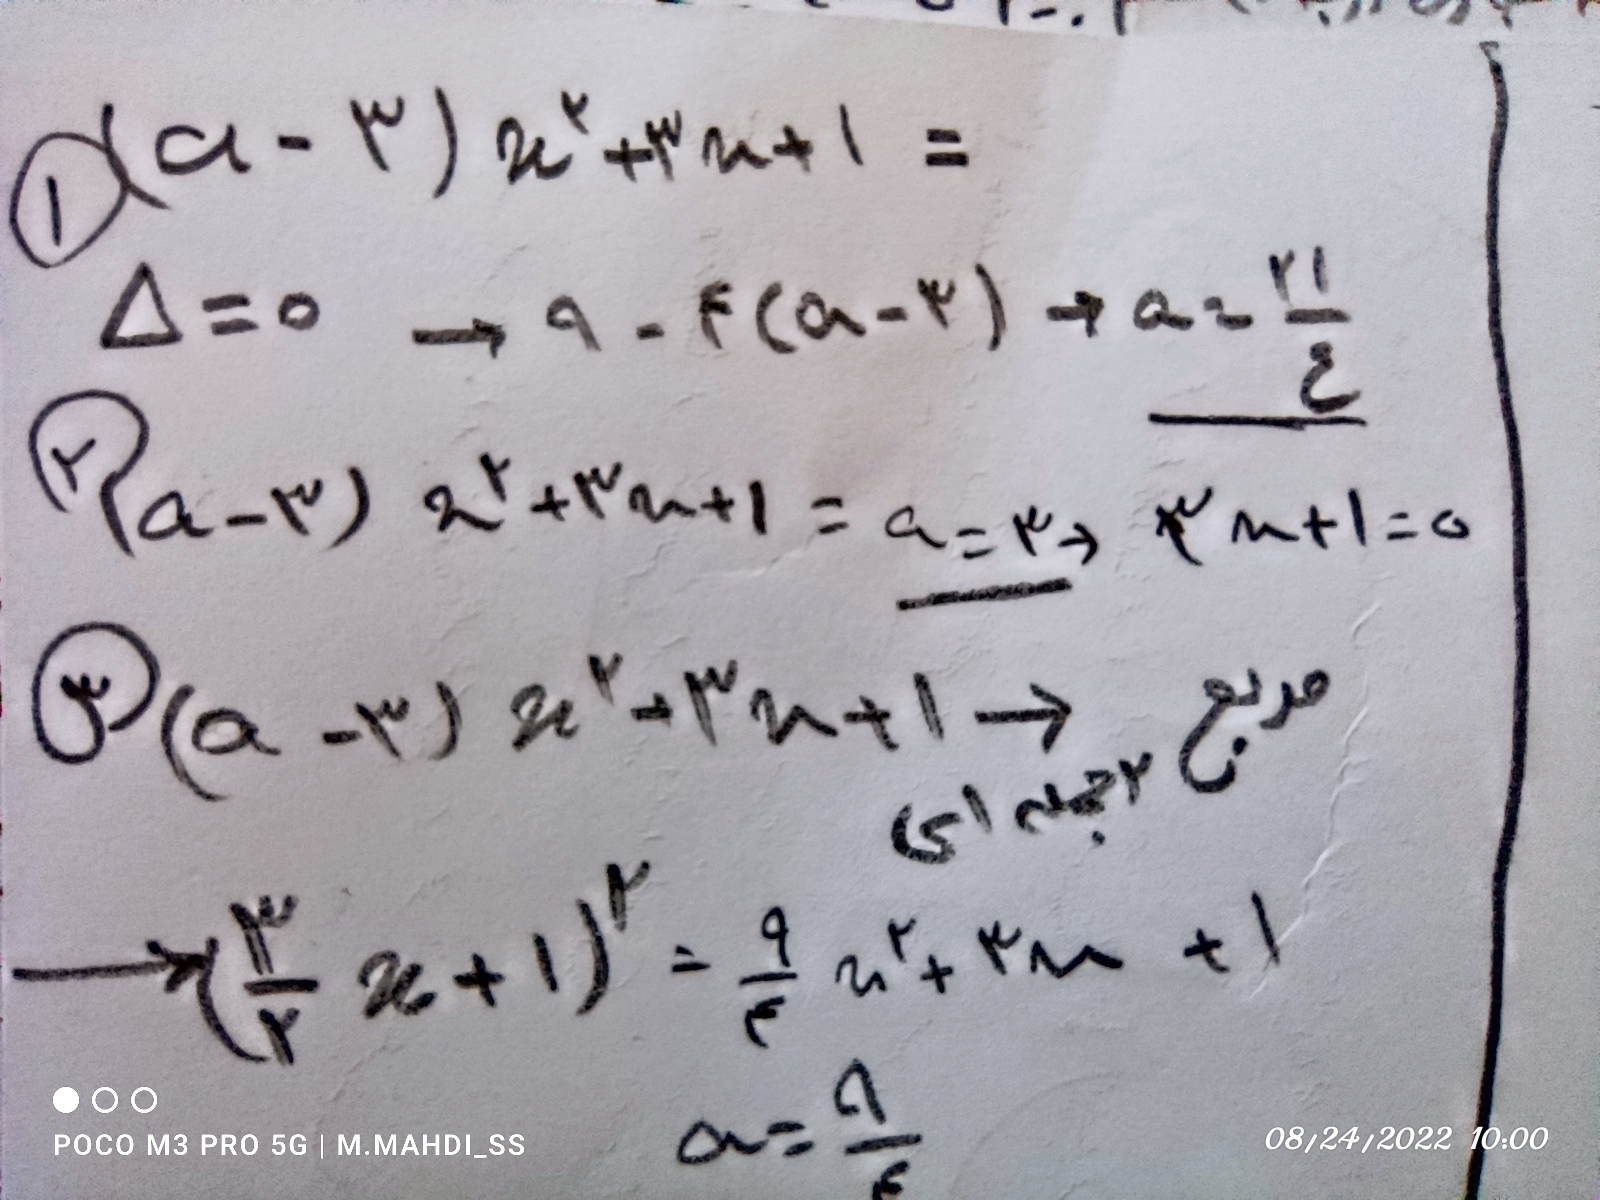 ۱ (a - ۳) x^۲ + ۳x + ۱ =
Δ = ۰ → ۹ - ۴(a - ۳) → a = ۲۱/۴
۲ (a - ۳) x^۲ + ۳x + ۱ = a = ۳ → ۳x + ۱ = ۰
۳ (a - ۳) x^۲ + ۳x + ۱ → مربع
۲ جمله ای
→ (۳/۲ x + ۱)^۲ = ۹/۴ x^۲ + ۳x + ۱
a = ۹/۴
POCO M3 PRO 5G | M.MAHDI_SS
08/24/2022 10:00